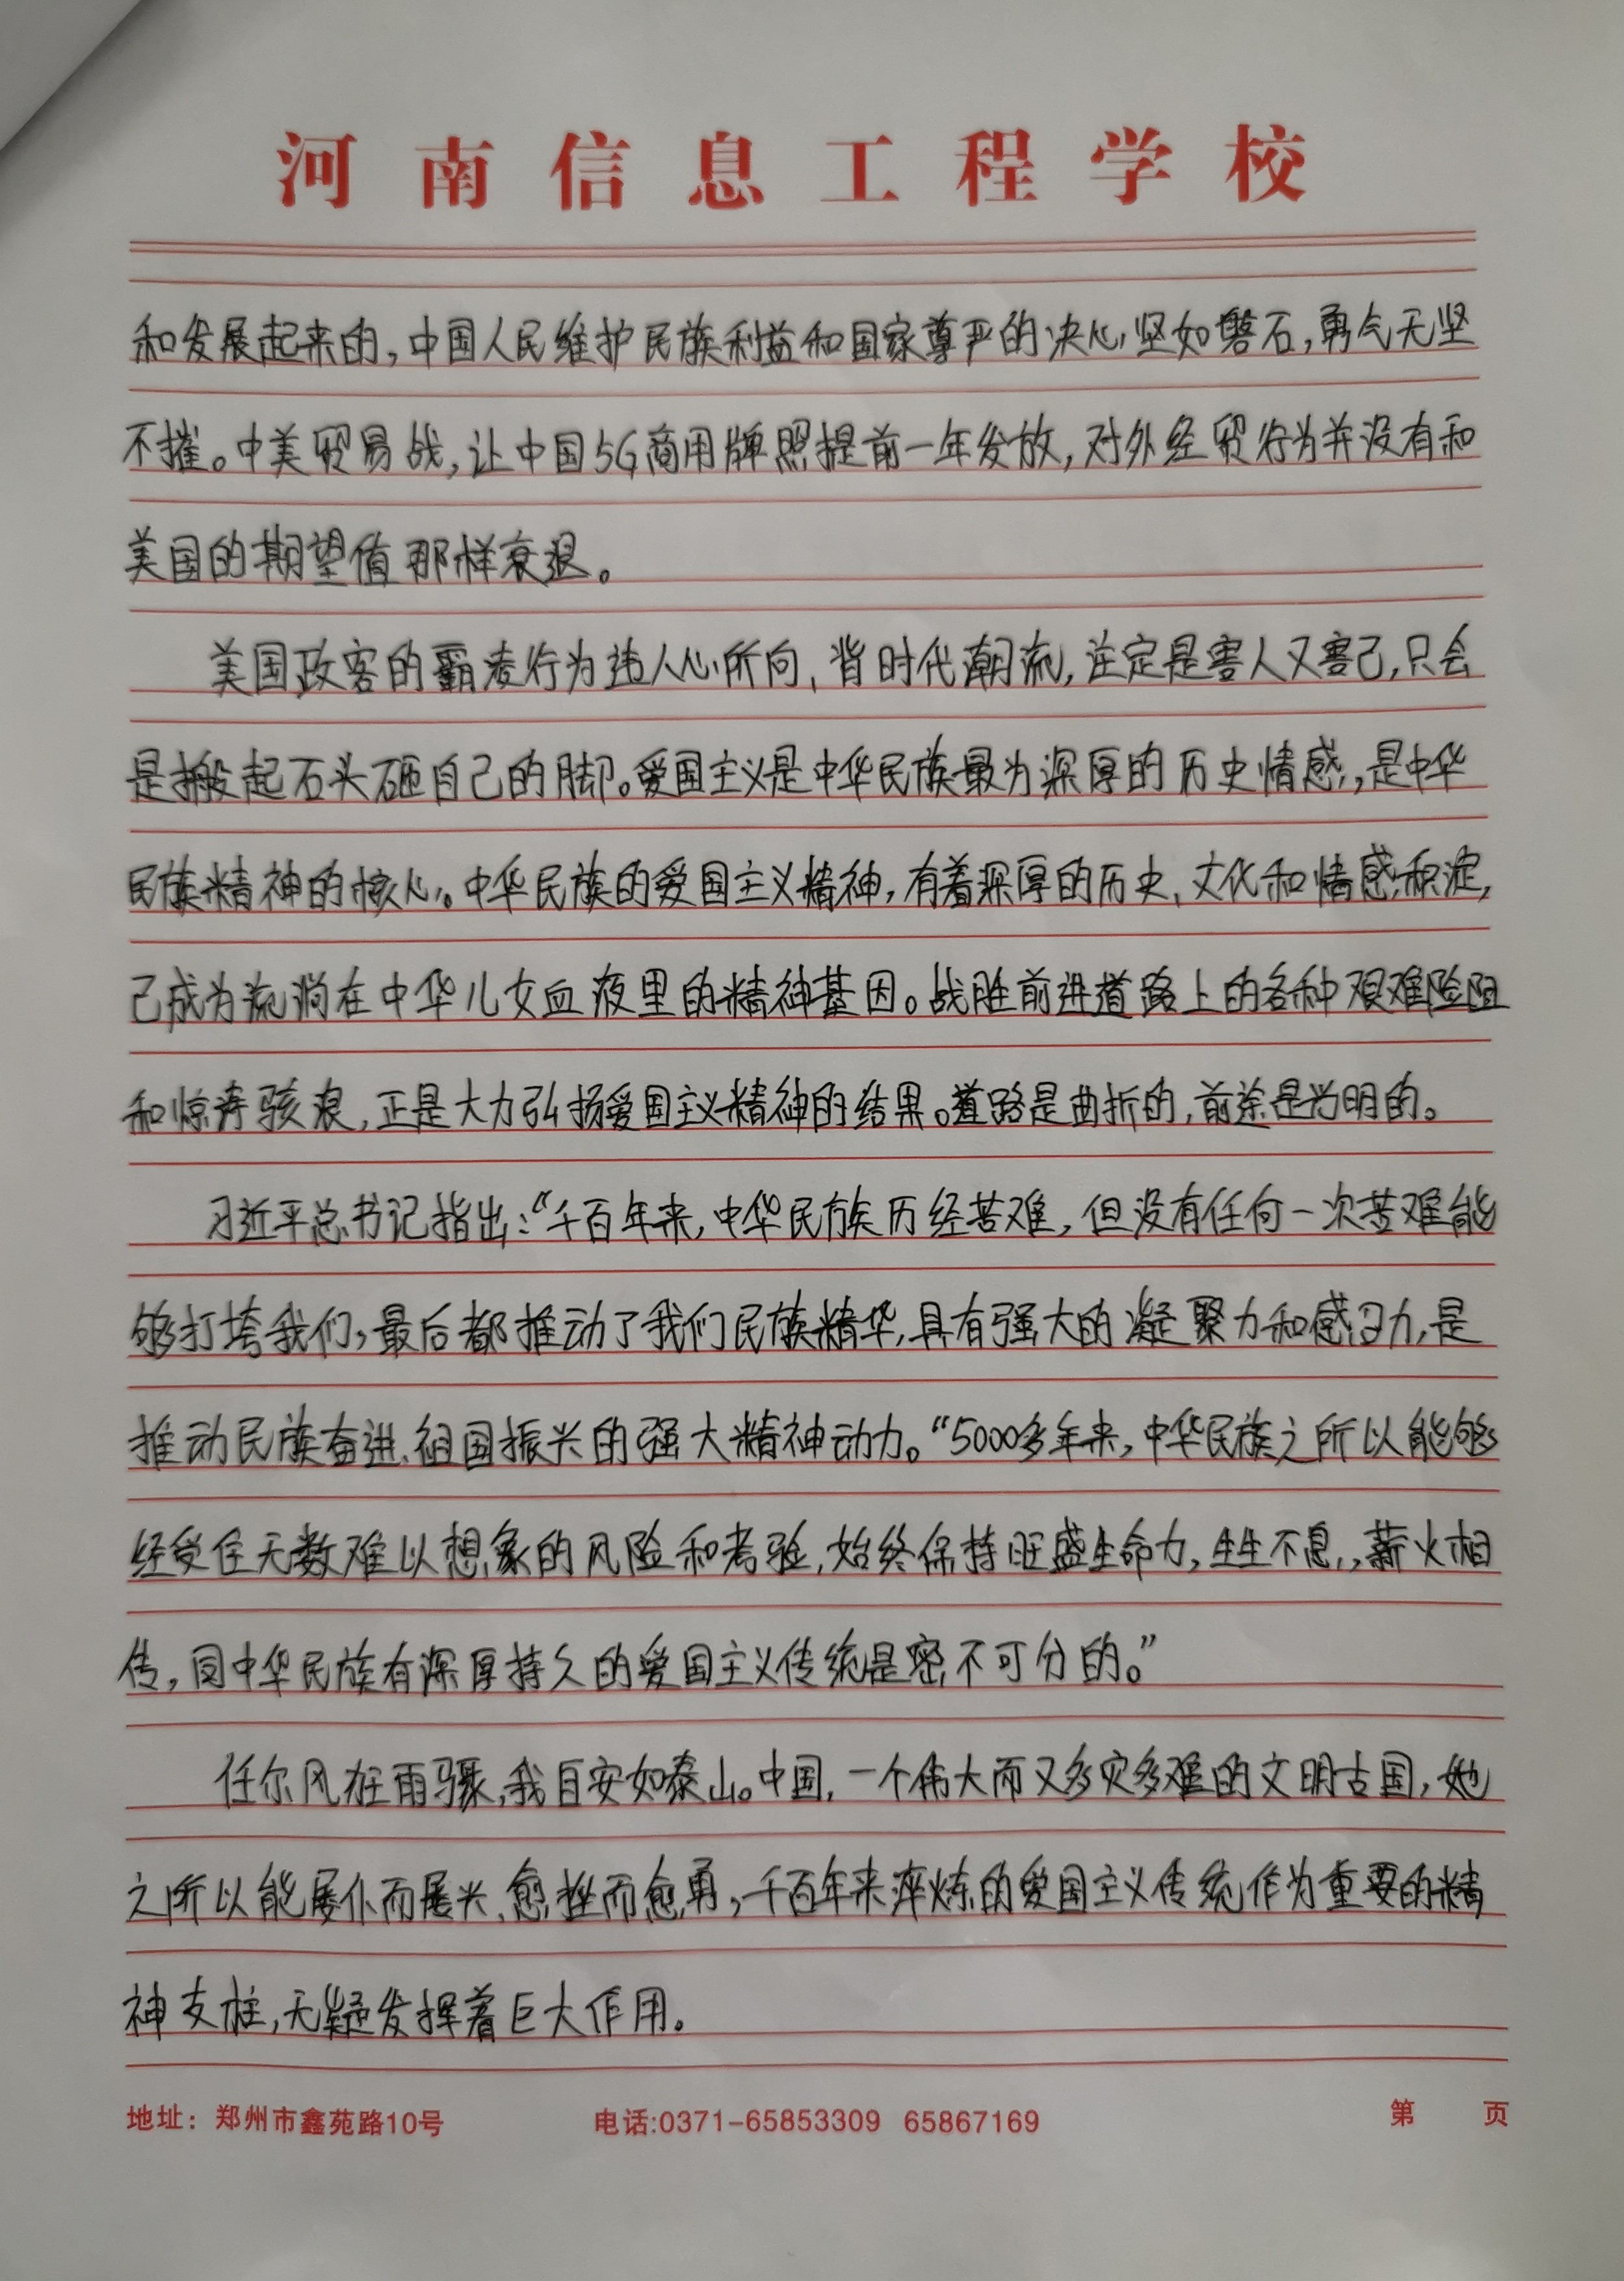 河南信息工程学校
和发展起来的,中国人民维护民族利益和国家尊严的决心坚如磐石,勇气无坚
不摧。中美贸易战,让中国5G商用牌照提前一年发放,对外经贸行为并没有和
美国的期望值那样衰退。
美国政客的霸凌行为违人心所向、背时代潮流,注定是害人又害己,只会
是搬起石头砸自己的脚。爱国主义是中华民族最为深厚的历史情感,是中华
民族精神的核心。中华民族的爱国主义精神,有着深厚的历史、文化和情感积淀,
已成为流淌在中华儿女血液里的精神基因。战胜前进道路上的各种艰难险阻
和惊涛骇浪,正是大力弘扬爱国主义精神的结果。道路是曲折的,前途是光明的。
习近平总书记指出:“千百年来,中华民族历经苦难,但没有任何一次苦难能
够打垮我们,最后都推动了我们民族精华,具有强大的凝聚力和感召力,是
推动民族奋进、祖国振兴的强大精神动力。“5000多年来,中华民族之所以能够
经受住无数难以想象的风险和考验,始终保持旺盛生命力,生生不息,薪火相
传,同中华民族有深厚持久的爱国主义传统是密不可分的。”
任尔风狂雨骤,我自安如泰山。中国,一个伟大而又多灾多难的文明古国,她
之所以能屡仆而屡兴、愈挫而愈勇,千百年来淬炼的爱国主义传统作为重要的精
神支柱,无疑发挥着巨大作用。
地址:郑州市鑫苑路10号 电话:0371-65853309 65867169 第 页